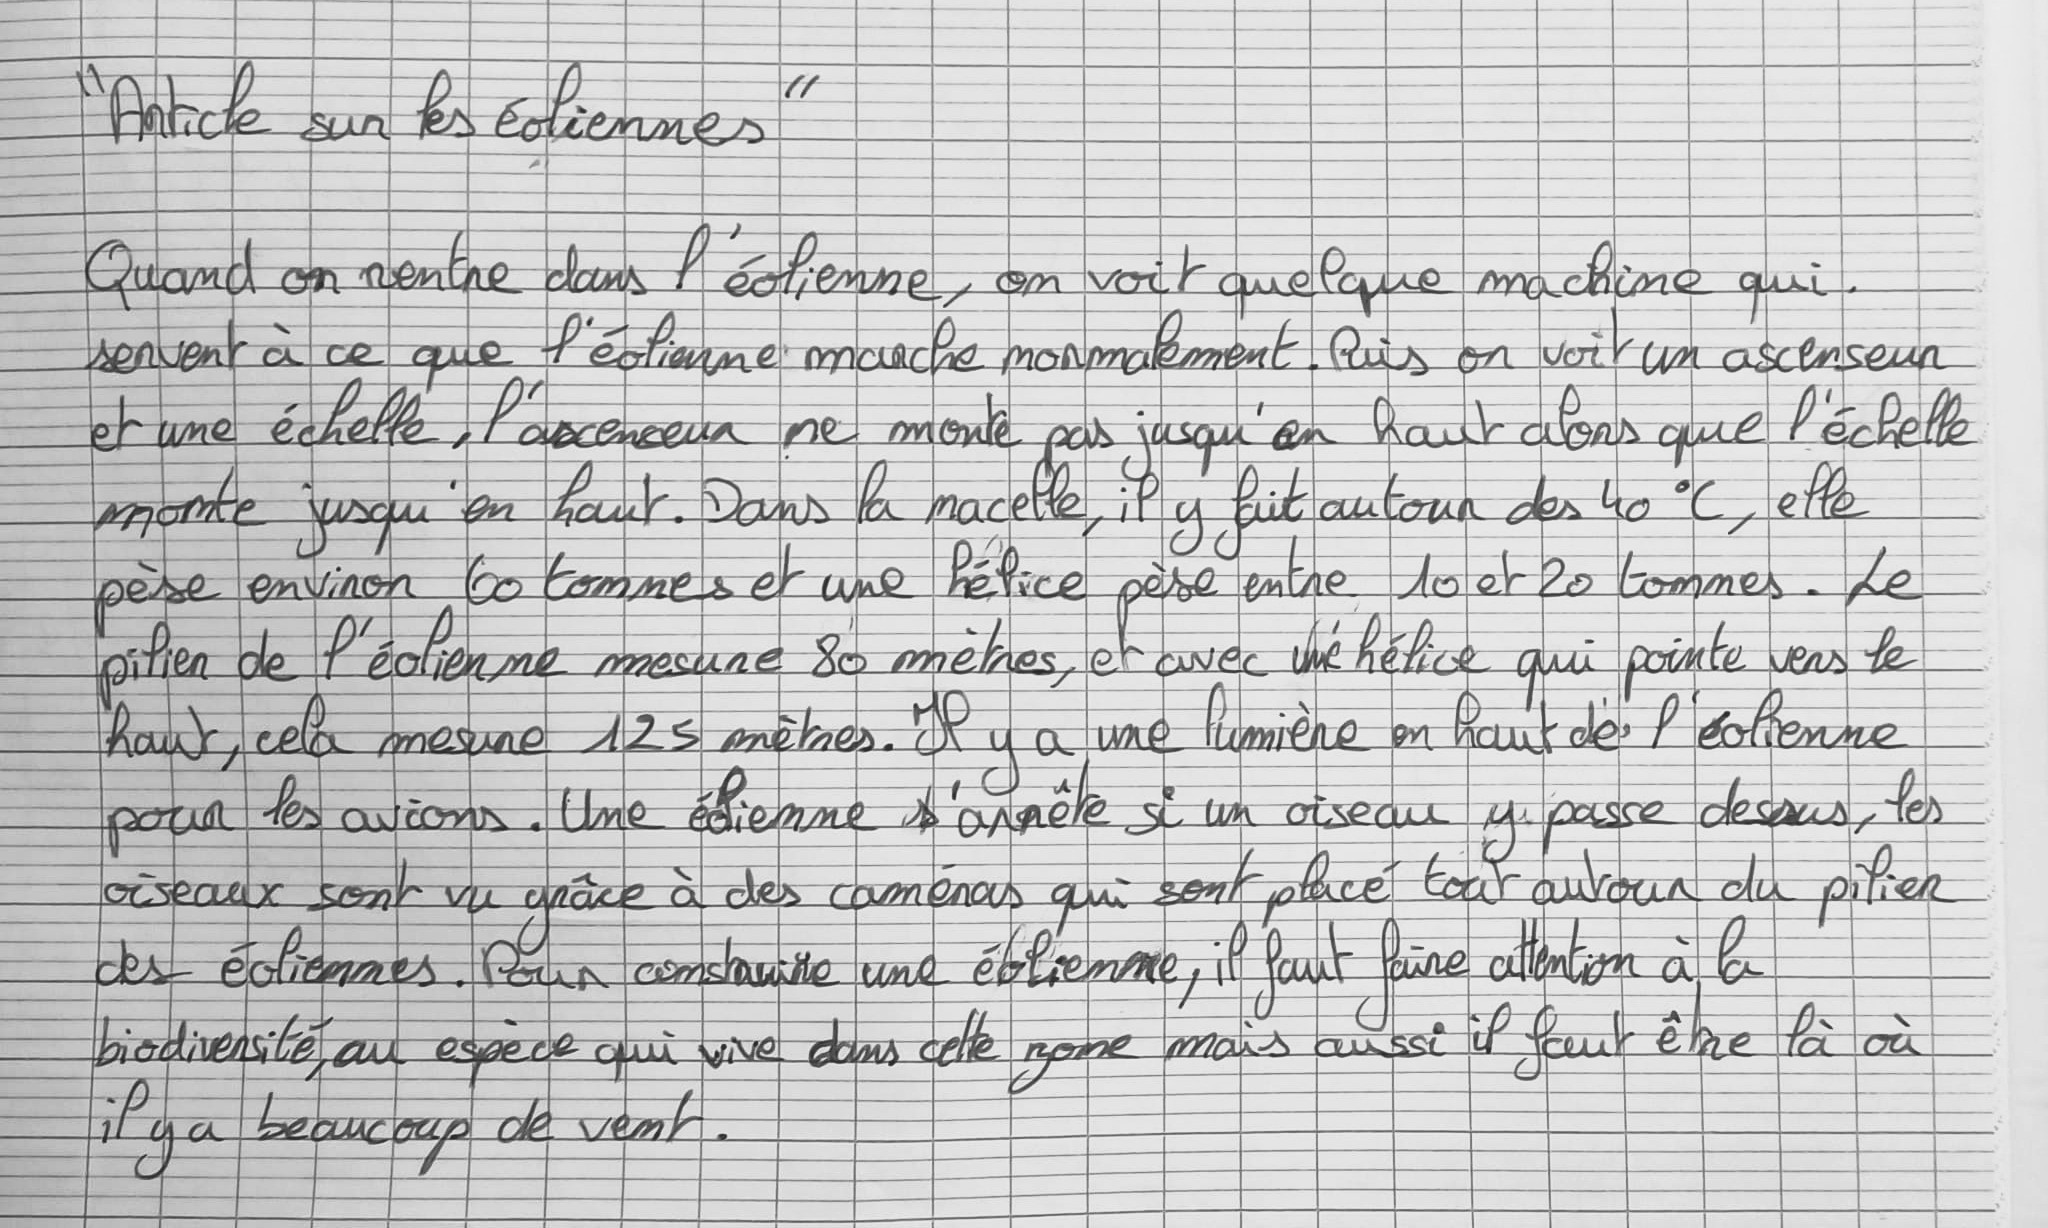 "Article sur les éoliennes"
Quand on rentre dans l'éolienne, on voit quelque machine qui
servent à ce que l'éolienne marche normalement. Puis on voit un ascenseur
et une échelle, l'ascenceur ne monte pas jusqu'en haut alors que l'échelle
monte jusqu'en haut. Dans la nacelle, il y fait autour des 40 °C, elle
pèse environ 60 tonnes et une hélice pèse entre 10 et 20 tonnes. Le
pilier de l'éolienne mesure 80 mètres, et avec une hélice qui pointe vers le
haut, cela mesure 125 mètres. Il y a une lumière en haut de l'éolienne
pour les avions. Une éolienne s'arrête si un oiseau y passe dessus, les
oiseaux sont vu grâce à des caméras qui sont placé tout autour du pilier
des éoliennes. Pour construire une éolienne, il faut faire attention à la
biodiversité, au espèce qui vive dans cette zone mais aussi il faut être là où
il y a beaucoup de vent.